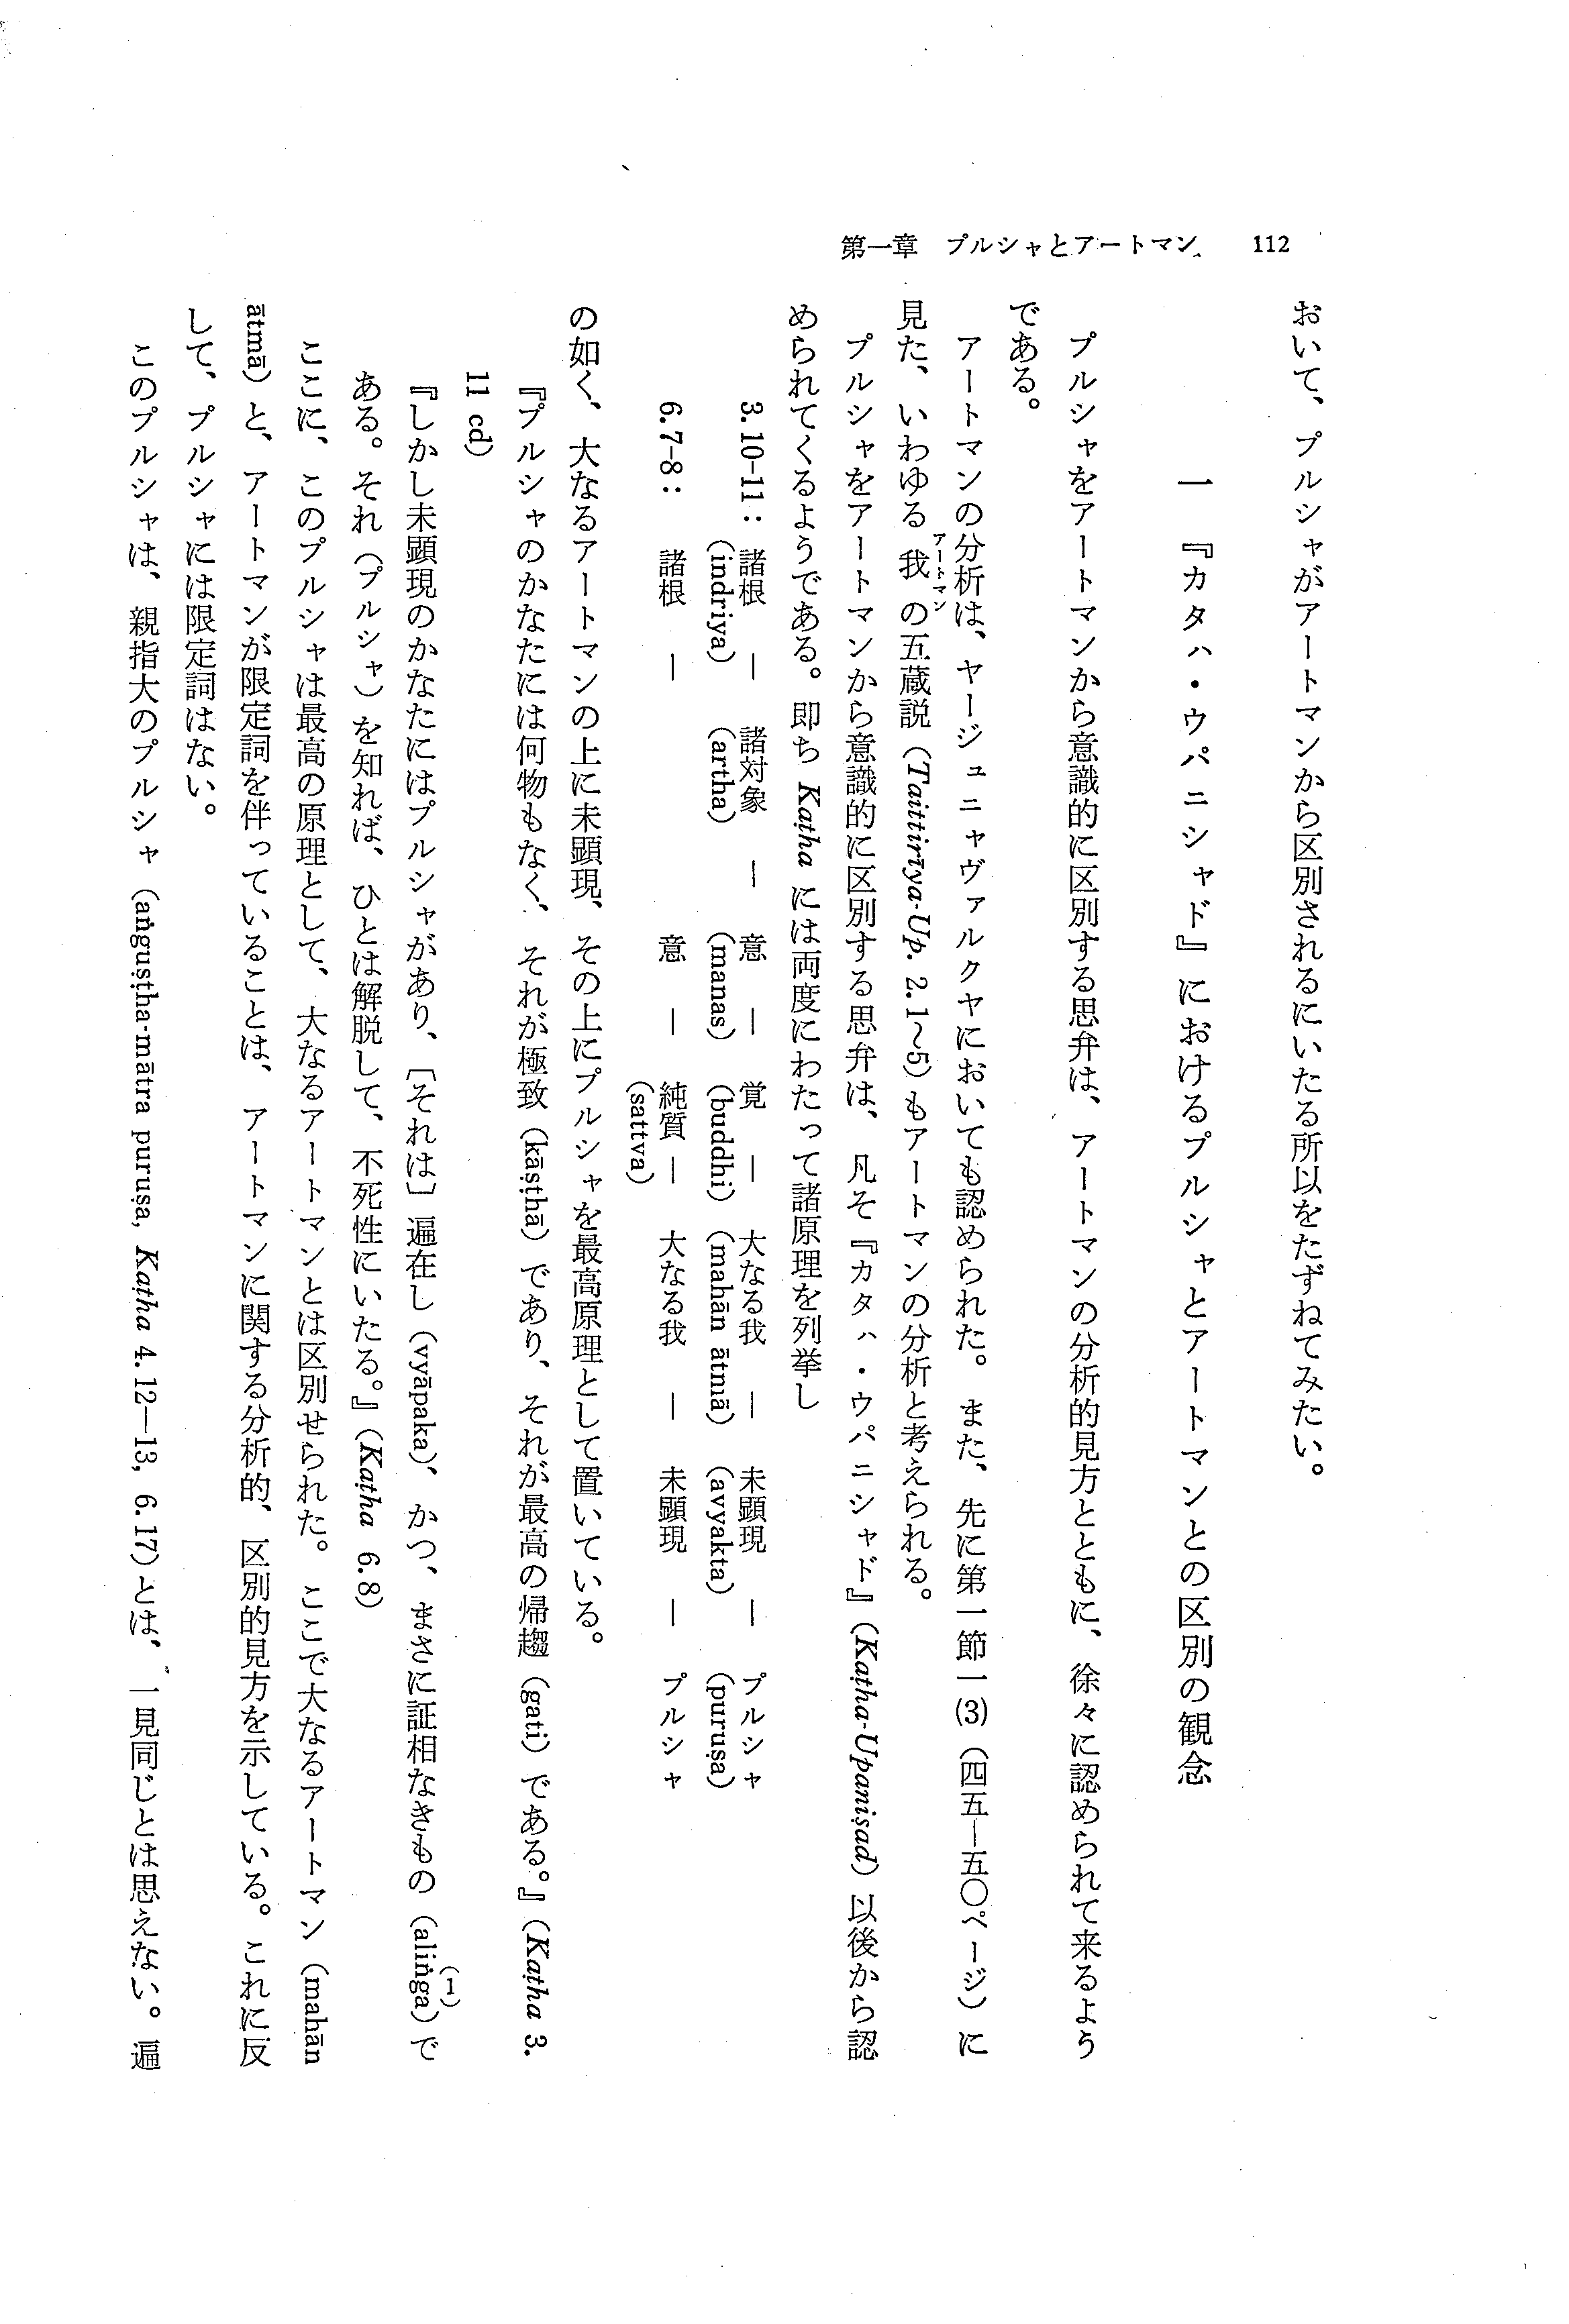 第一章　プルシャとアートマン　112
おいて、プルシャがアートマンから区別されるにいたる所以をたずねてみたい。
一　『カタハ・ウパニシャド』におけるプルシャとアートマンとの区別の観念
プルシャをアートマンから意識的に区別する思弁は、アートマンの分析的見方とともに、徐々に認められて来るよう
である。
アートマンの分析は、ヤージュニャヴァルクヤにおいても認められた。また、先に第一節一(3)（四五―五〇ページ）に
見た、いわゆる我アートマンの五蔵説（Taittirīya-Up. 2. 1～5）もアートマンの分析と考えられる。
プルシャをアートマンから意識的に区別する思弁は、凡そ『カタハ・ウパニシャド』（Kaṭha-Upaniṣad）以後から認
められてくるようである。即ち Kaṭha には両度にわたって諸原理を列挙し
3. 10–11： 諸根 ― 諸対象 ― 意 ― 覚 ― 大なる我 ― 未顕現 ― プルシャ
(indriya) (artha) (manas) (buddhi) (mahān ātmā) (avyakta) (puruṣa)
6. 7–8： 諸根 ― 意 ― 純質 ― 大なる我 ― 未顕現 ― プルシャ
(sattva)
の如く、大なるアートマンの上に未顕現、その上にプルシャを最高原理として置いている。
『プルシャのかなたには何物もなく、それが極致（kāṣṭhā）であり、それが最高の帰趨（gati）である。』（Kaṭha 3.
11 cd）
『しかし未顕現のかなたにはプルシャがあり、〔それは〕遍在し（vyāpaka）、かつ、まさに証相なきもの（aliṅga）(1)で
ある。それ（プルシャ）を知れば、ひとは解脱して、不死性にいたる。』（Kaṭha 6. 8）
ここに、このプルシャは最高の原理として、大なるアートマンとは区別せられた。ここで大なるアートマン（mahān
ātmā）と、アートマンが限定詞を伴っていることは、アートマンに関する分析的、区別的見方を示している。これに反
して、プルシャには限定詞はない。
このプルシャは、親指大のプルシャ（aṅguṣṭha-mātra puruṣa, Kaṭha 4. 12―13, 6. 17）とは、一見同じとは思えない。遍